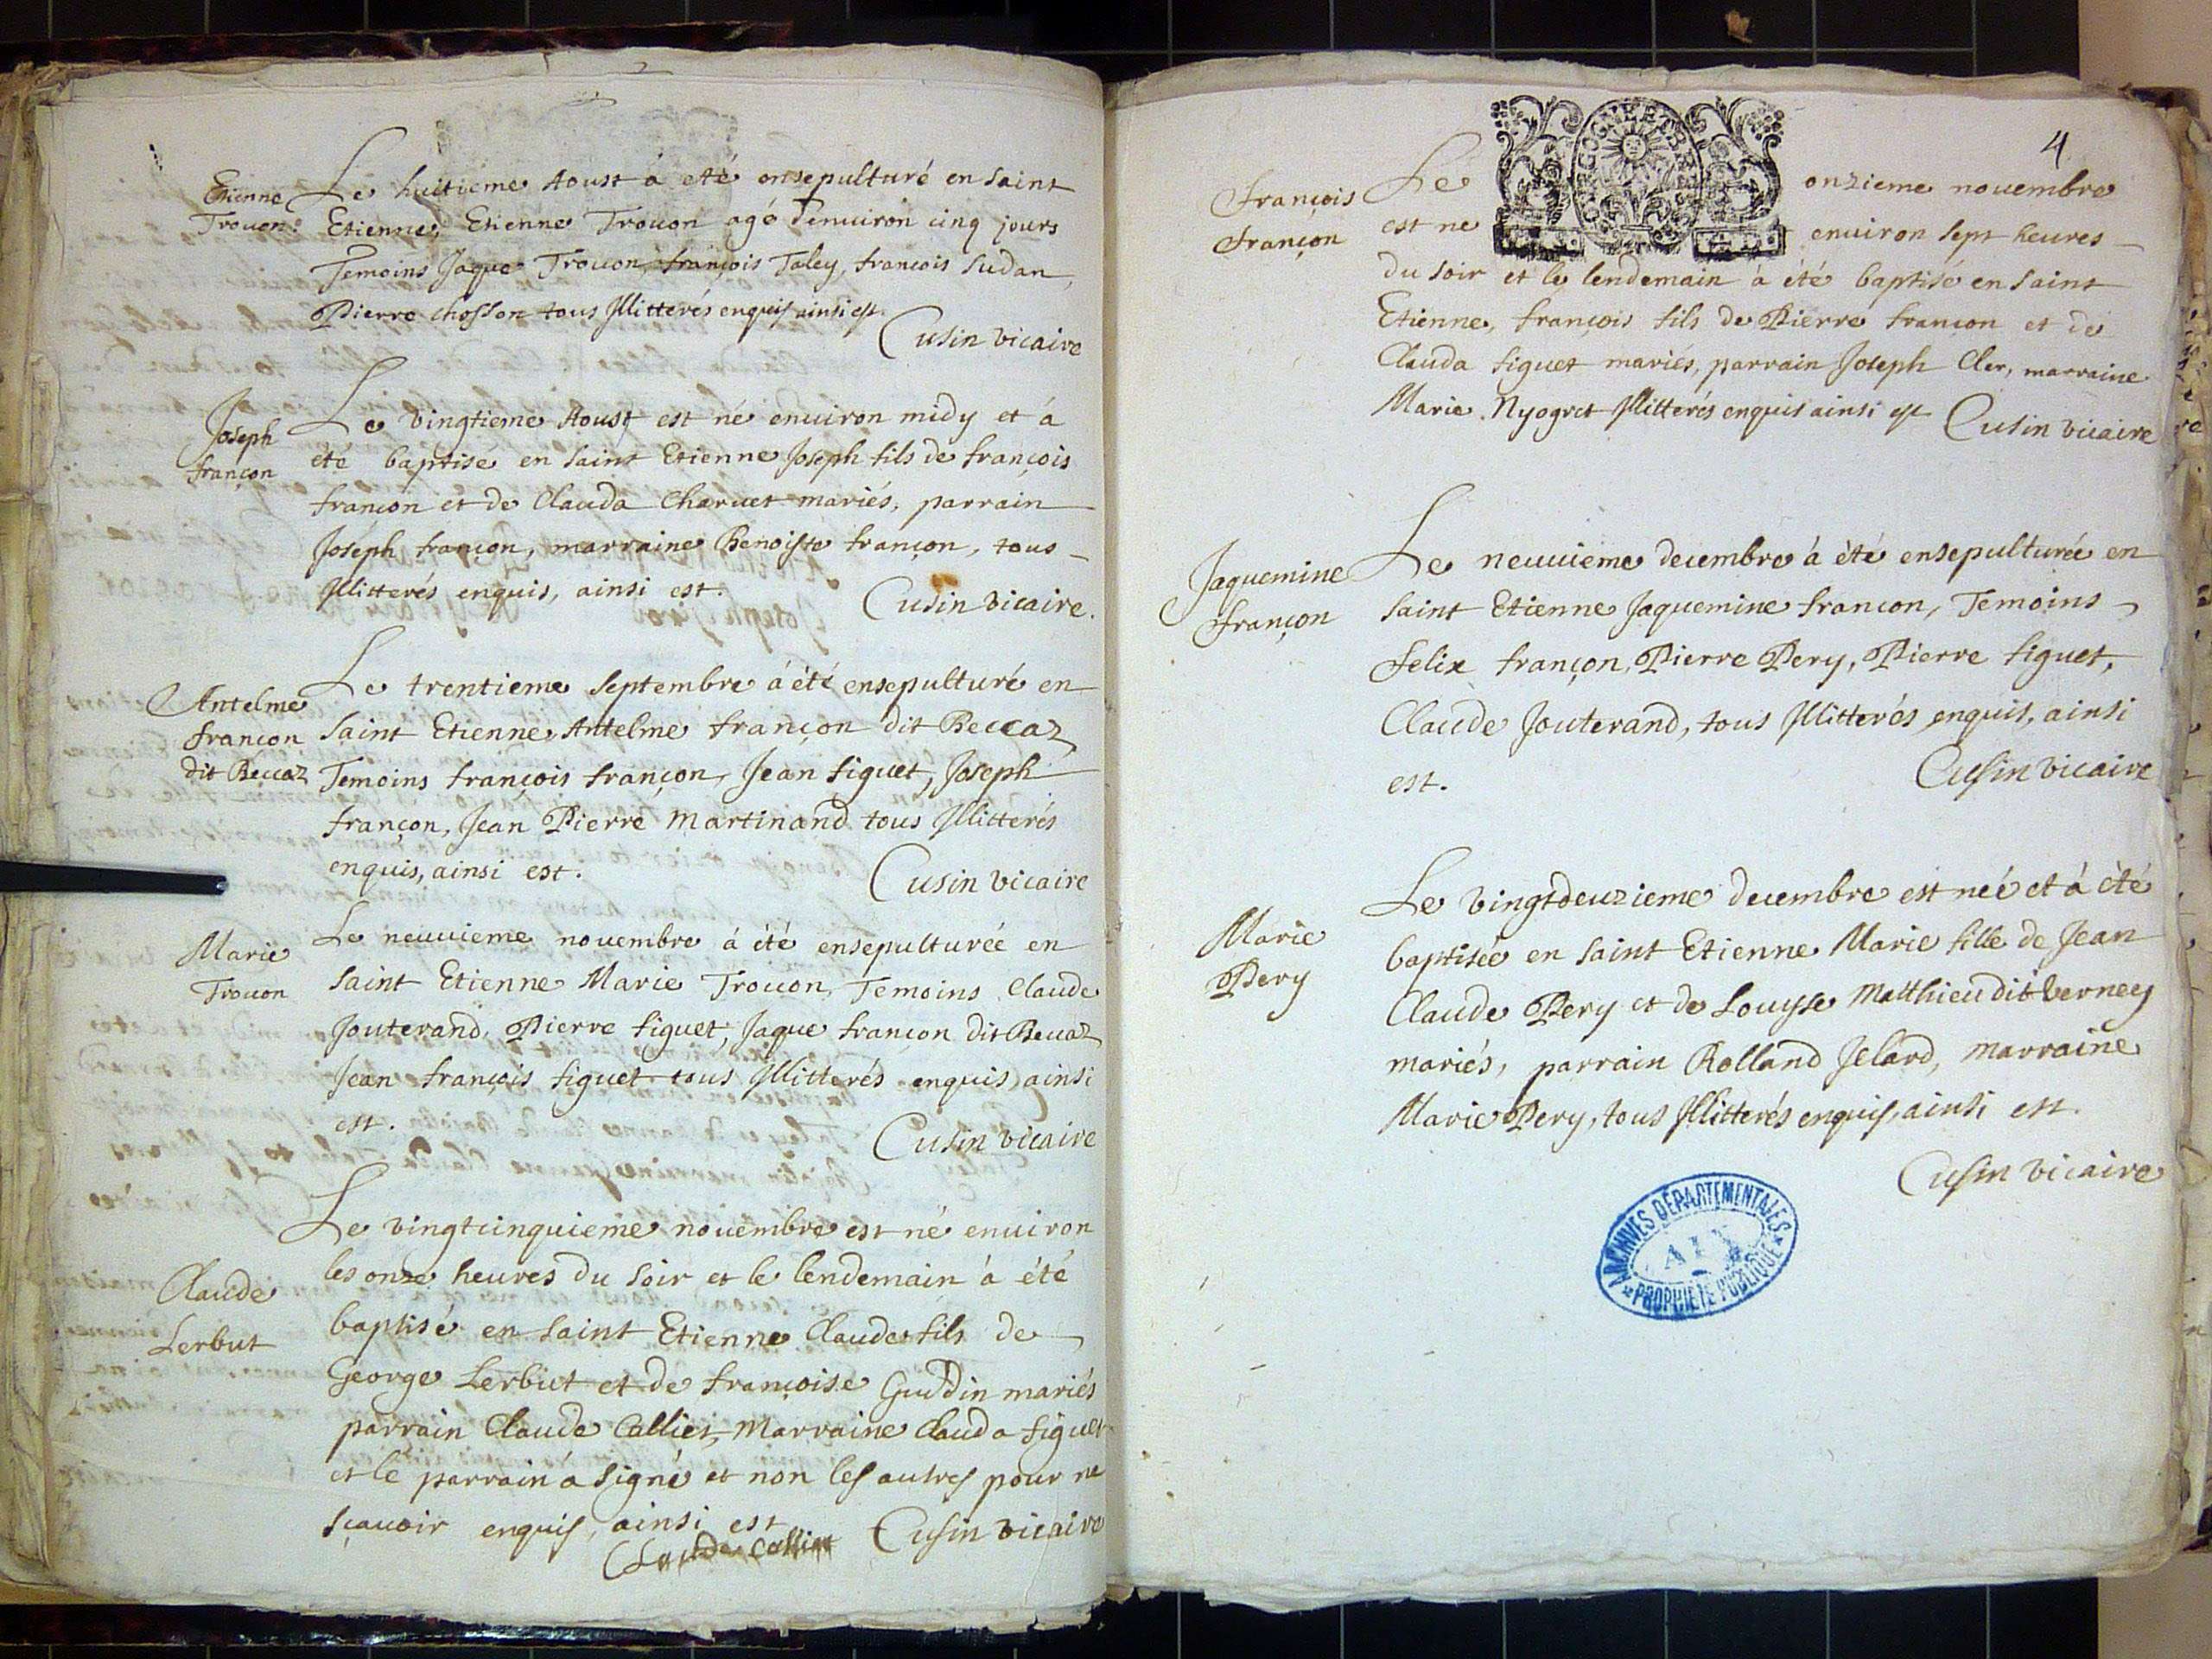 Etienne
Trouon.
Le huitieme Aoust à eté ensepulturé en Saint
Etienne, Etienne Trouon agé d'enuiron cinq jours
Temoins Jaque Trouon, françois Taley, francois Sudan,
Pierre chosson tous Illitterés enquis ainsi est.
Cusin vicaire
Joseph
françon
Le vingtieme Aoust est né enuiron midy et à
été baptisé en Saint Etienne Joseph fils de françois
françon et de Clauda Charuet mariés, parrain
Joseph françon, marraine Benoiste françon, tous
Illitterés enquis, ainsi est.
Cusin vicaire.
Antelme
françon
dit Beccaz
Le trentieme Septembre à été ensepulturé en
Saint Etienne, Antelme françon dit Beccaz,
Temoins françois françon, Jean figuet, Joseph
françon, Jean Pierre Martinand tous Illitterés
enquis, ainsi est.
Cusin vicaire
Marie
Trouon
Le neuuieme nouembre à été ensepulturée en
Saint Etienne Marie Trouon, Temoins Claude
Jouterand, Pierre figuet, Jaque françon dit Beccaz
Jean françois figuet tous Illitterés enquis, ainsi
est.
Cusin vicaire
Claude
Lerbut
Le vingtcinquieme nouembre est né enuiron
les onze heures du soir et le lendemain à été
baptisé en Saint Etienne Claude fils de
George Lerbut et de françoise Guddin mariés
parrain Claude Colliet, Marraine Clauda figuet
et le parrain à signé et non les autres pour ne
sçauoir enquis, ainsi est
Claude Colliet
Cusin vicaire
4
françois
françon
Le onzieme nouembre
est ne enuiron sept heures
du soir et le lendemain à été baptisé en Saint
Etienne, françois fils de Pierre françon et de
Clauda figuet mariés, parrain Joseph Cler, marraine
Marie Nyogret Illitterés enquis ainsi est
Cusin vicaire
Jaquemine
françon
Le neuuieme decembre à été ensepulturée en
Saint Etienne Jaquemine françon, Temoins
felix françon, Pierre Pery, Pierre figuet,
Claude Jouterand, tous Illitterés enquis, ainsi
est.
Cusin vicaire
Marie
Pery
Le vingtdeuzieme decembre est née et à été
baptisée en Saint Etienne Marie fille de Jean
Claude Pery et de Louyse Matthieu dit Verney
mariés, parrain Rolland Jelard, marraine
Marie Pery, tous Illitterés enquis, ainsi est.
Cusin vicaire
ARCHIVES DÉPARTEMENTALES
AIN
PROPRIÉTÉ PUBLIQUE